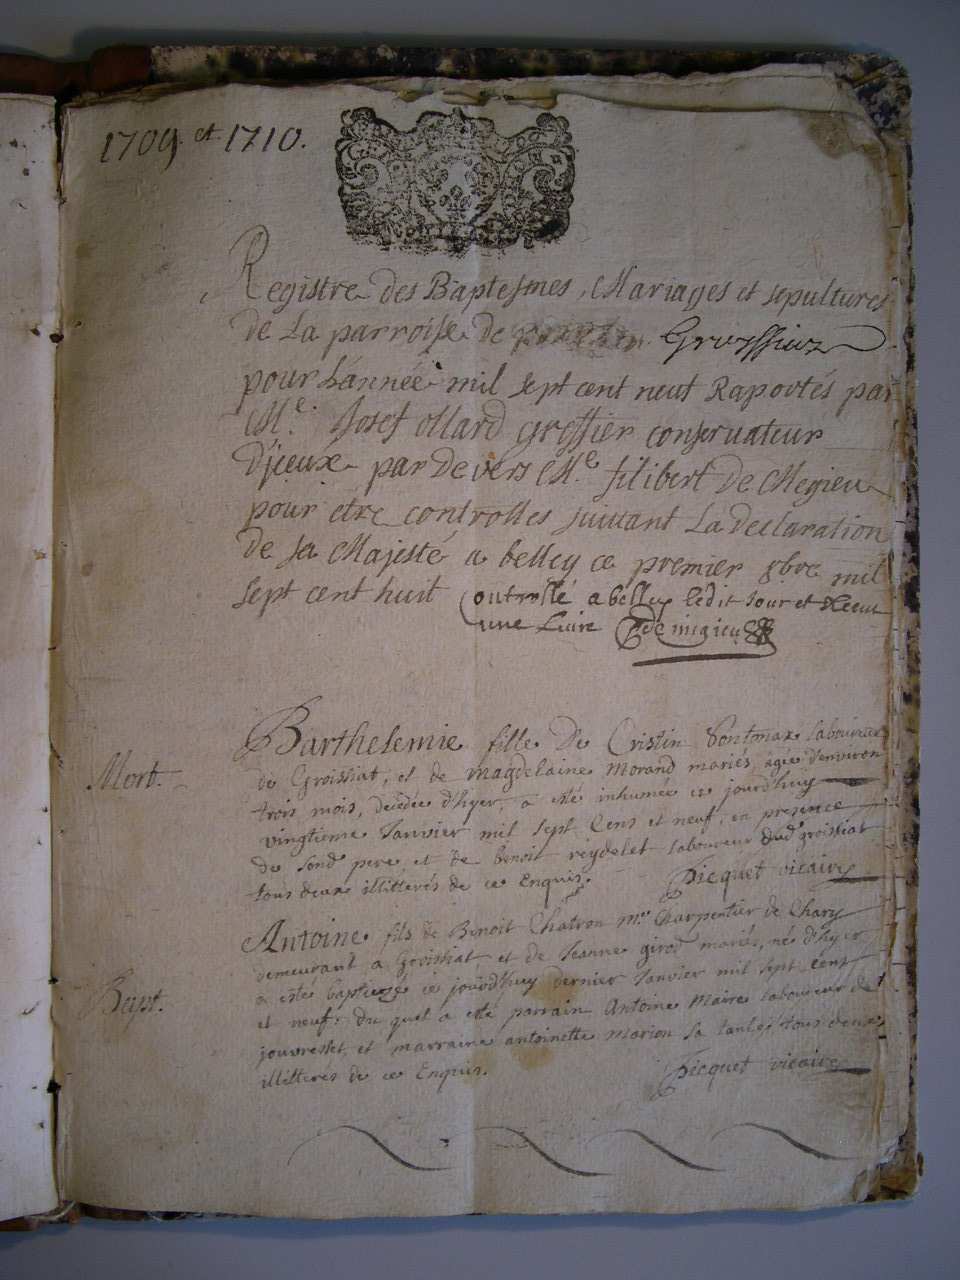 1709. et 1710.
Registre des Baptesmes, Mariages et sepultures
de La parroisse de Groissiaz
pour L'année mil sept cent neuf Raportés par
Me. Josef ollard greffier conservateur
D'jceux par devers Me. filibert De Megieu
pour etre controlles suivant La declaration
de sa Majesté a belley ce premier 8bre mil
sept cent huit Controllé a belley ledit Jour et Receu
une Livre De migieu
Mort.
Barthelemie fille De Cristin Pontmax laboureur
de Groissiat, et de magdelaine morand mariés, agée d'environ
trois mois, decedée d'hyer, a esté inhumée ce jourd'huy
vingtieme Janvier mil sept Cens et neuf, en presence
de sond pere et de benoit reydelet laboureur dud groissiat
tous deux illitterés de ce Enquis. Picquet vicaire
Bapt.
Antoine fils de Benoit Chatron me Charpentier de Chary
demeurant a Groissiat et de Jeanne girod mariés, né d'hyer
a esté baptizé ce jourd'huy dernier Janvier mil sept Cent
et neuf: du quel a esté parrain Antoine Maire laboureur de
jouvresset, et marraine antoinette marion sa tante, tous deux
illitteres de ce Enquis. Picquet vicaire